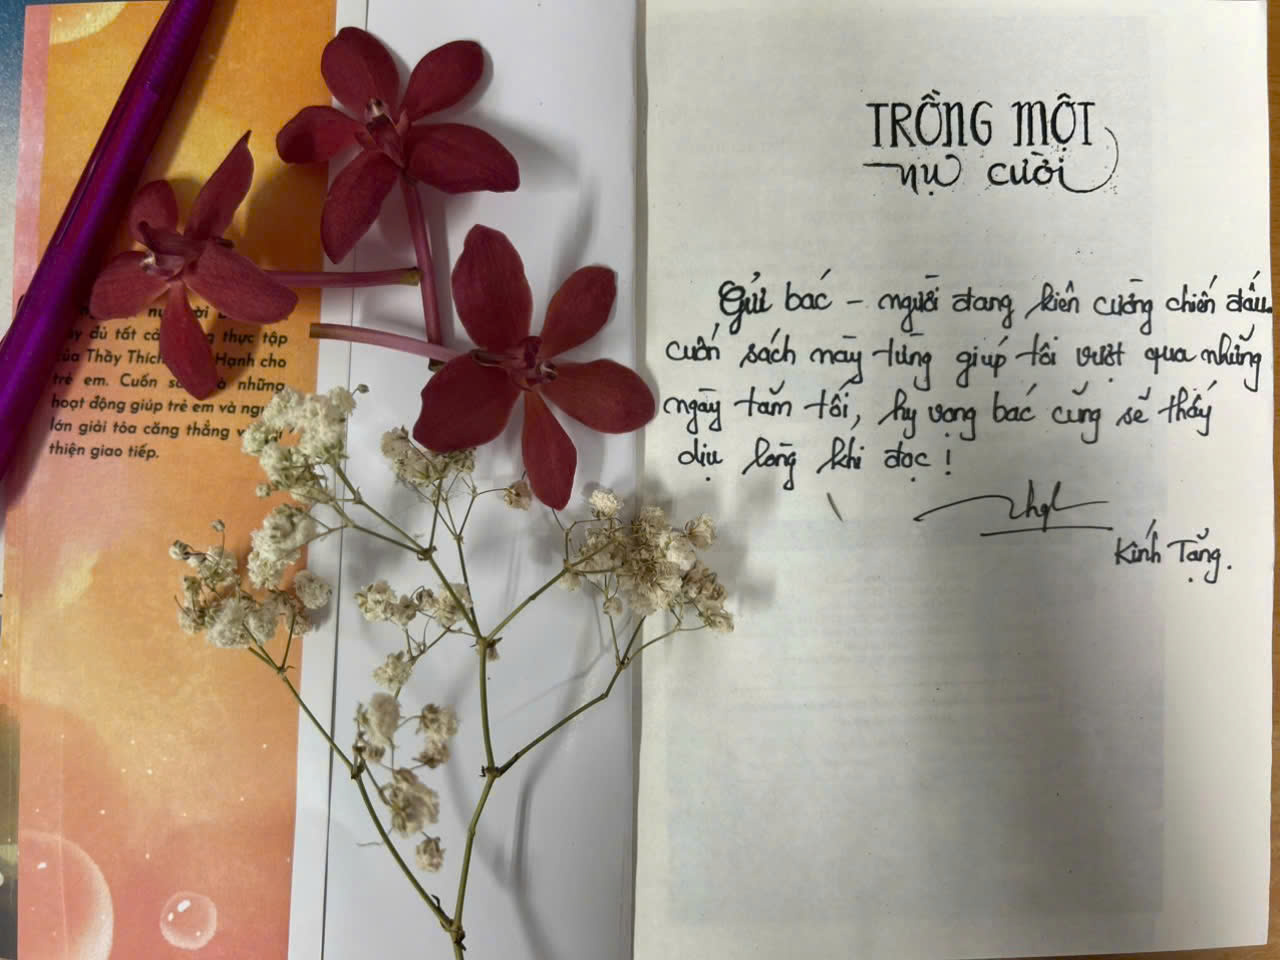 nụ
đủ tất cả thực tập
của Thầy Thích Hạnh cho
trẻ em. Cuốn những
hoạt động giúp trẻ em và
lớn giải tỏa căng thẳng
thiện giao tiếp.
TRỒNG MỘT
nụ cười
Gửi bác – người đang kiên cường chiến đấu.
cuốn sách này từng giúp tôi vượt qua những
ngày tăm tối, hy vọng bác cũng sẽ thấy
dịu lòng khi đọc !
Kính Tặng.